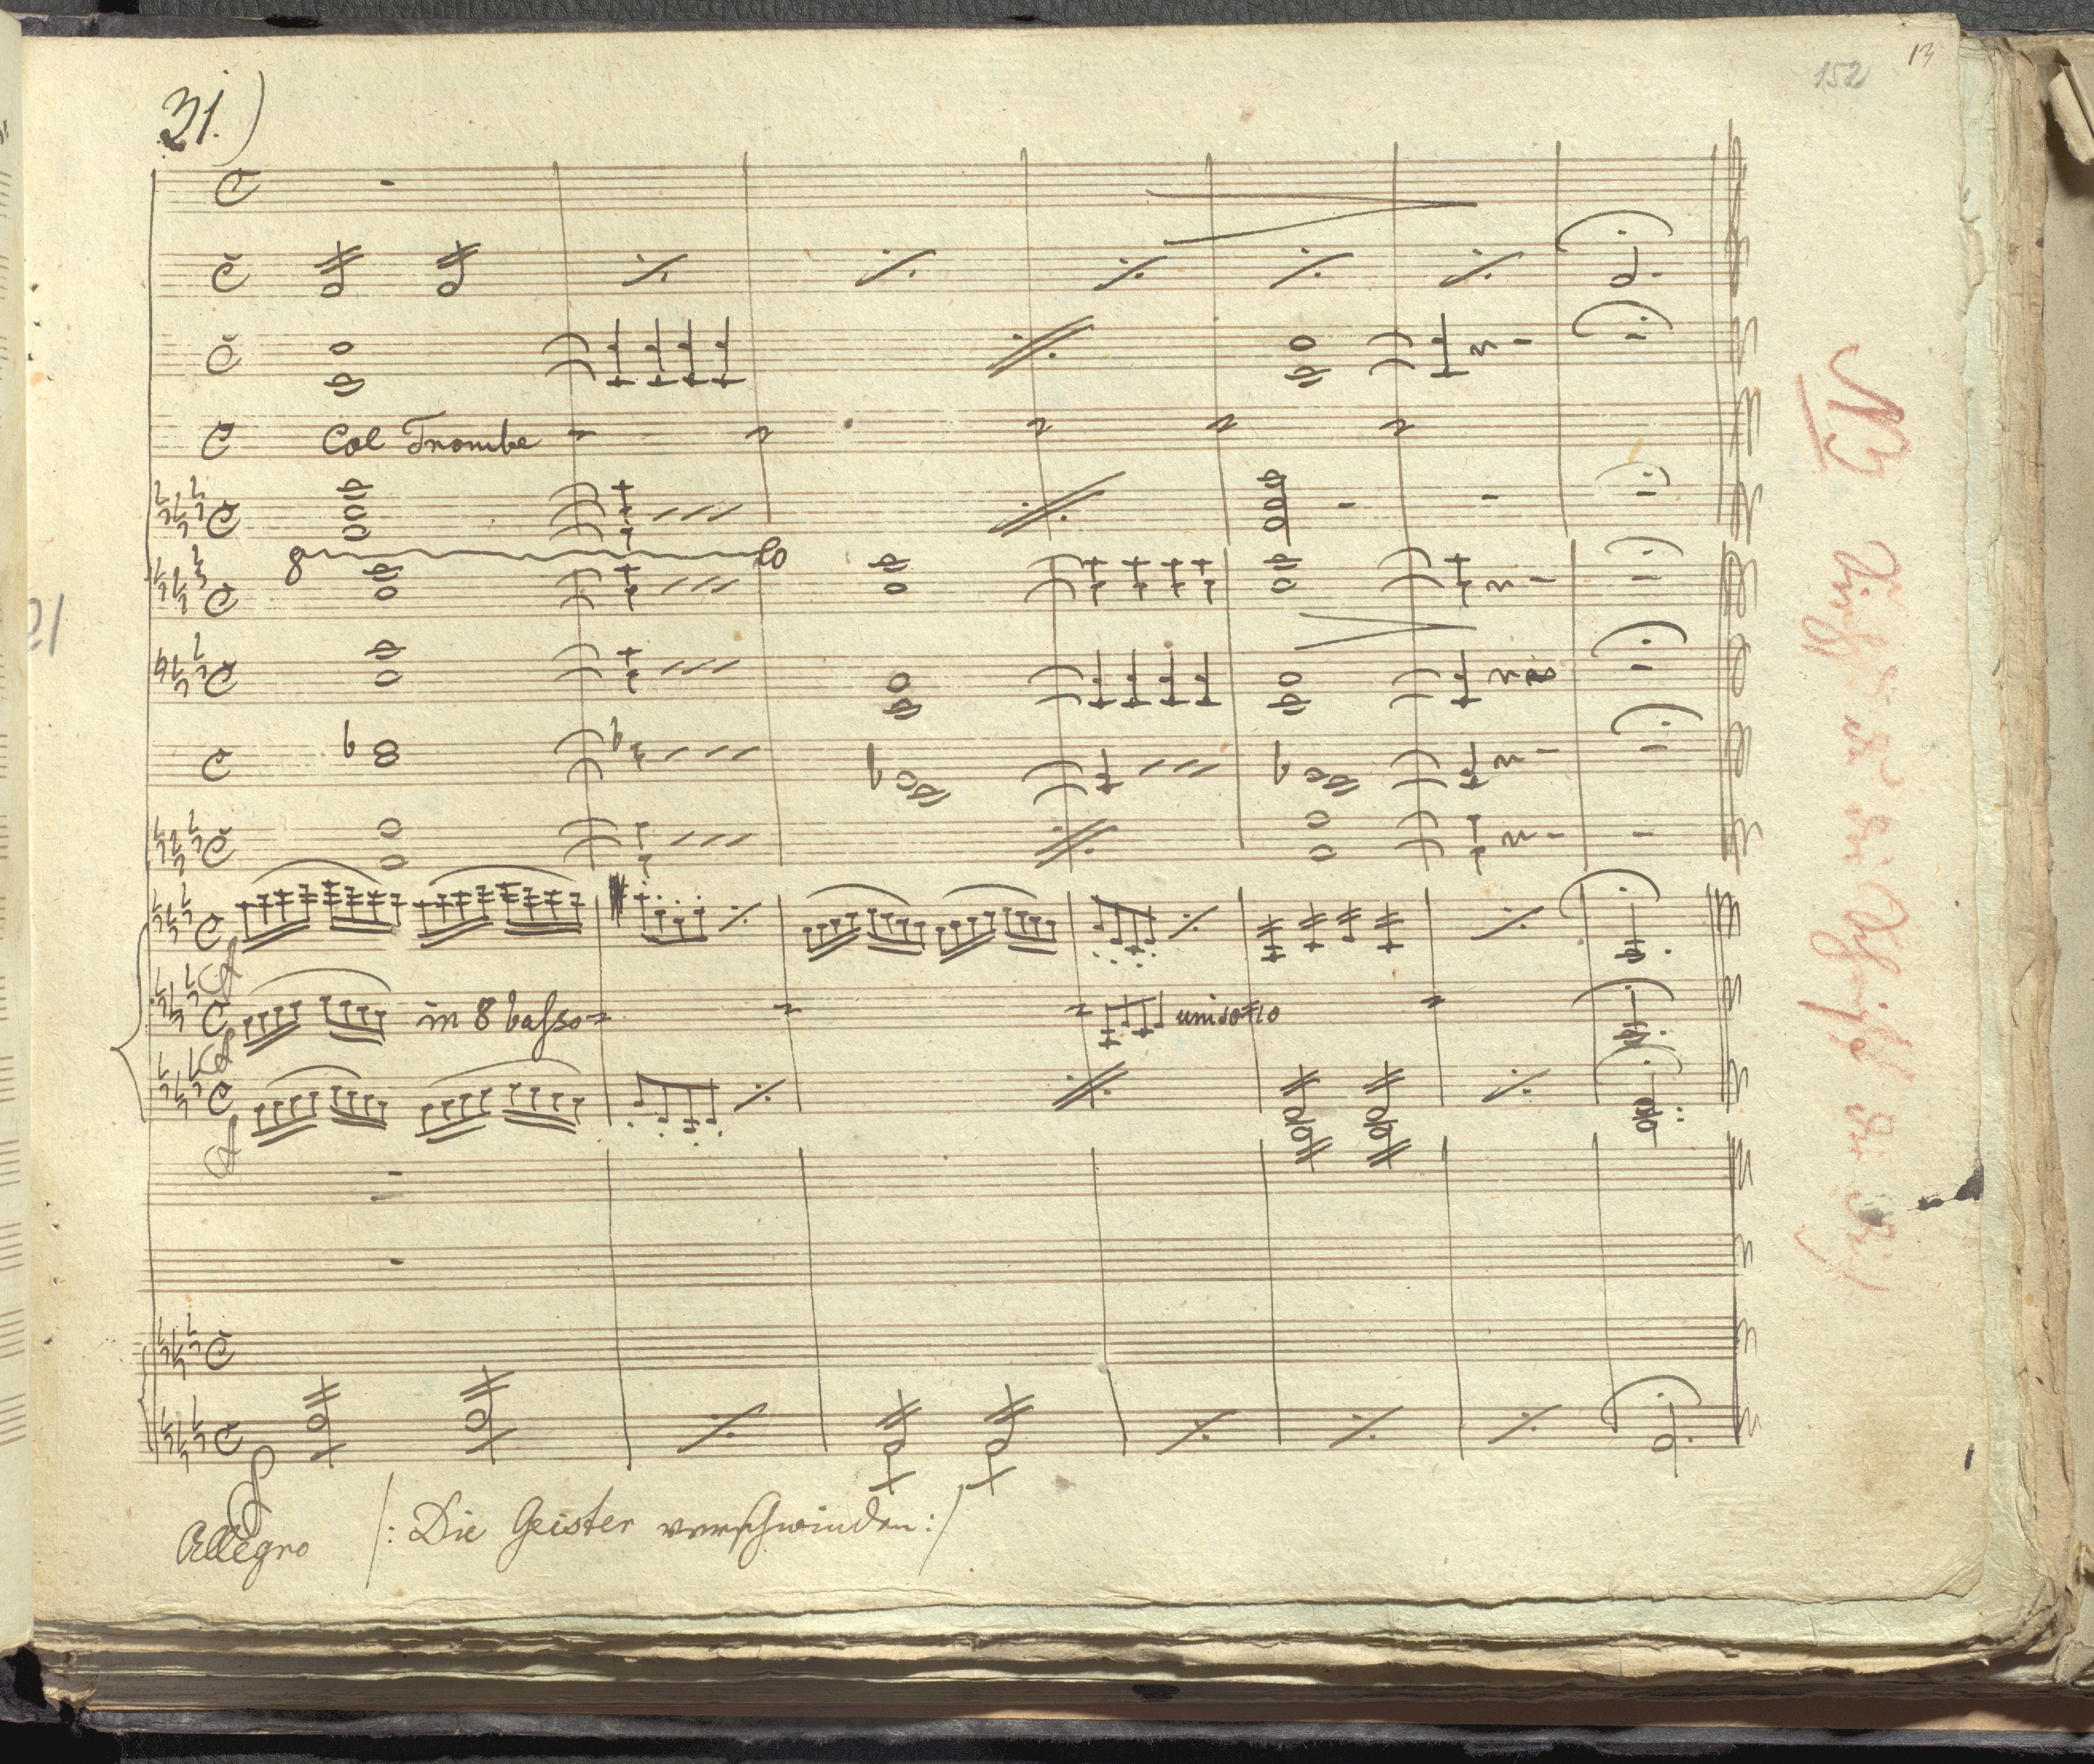 152
13
31.)
Col Trombe
8 lo
in 8 basso
unisono
Allegro /: Die Geister verschwinden :/
NB